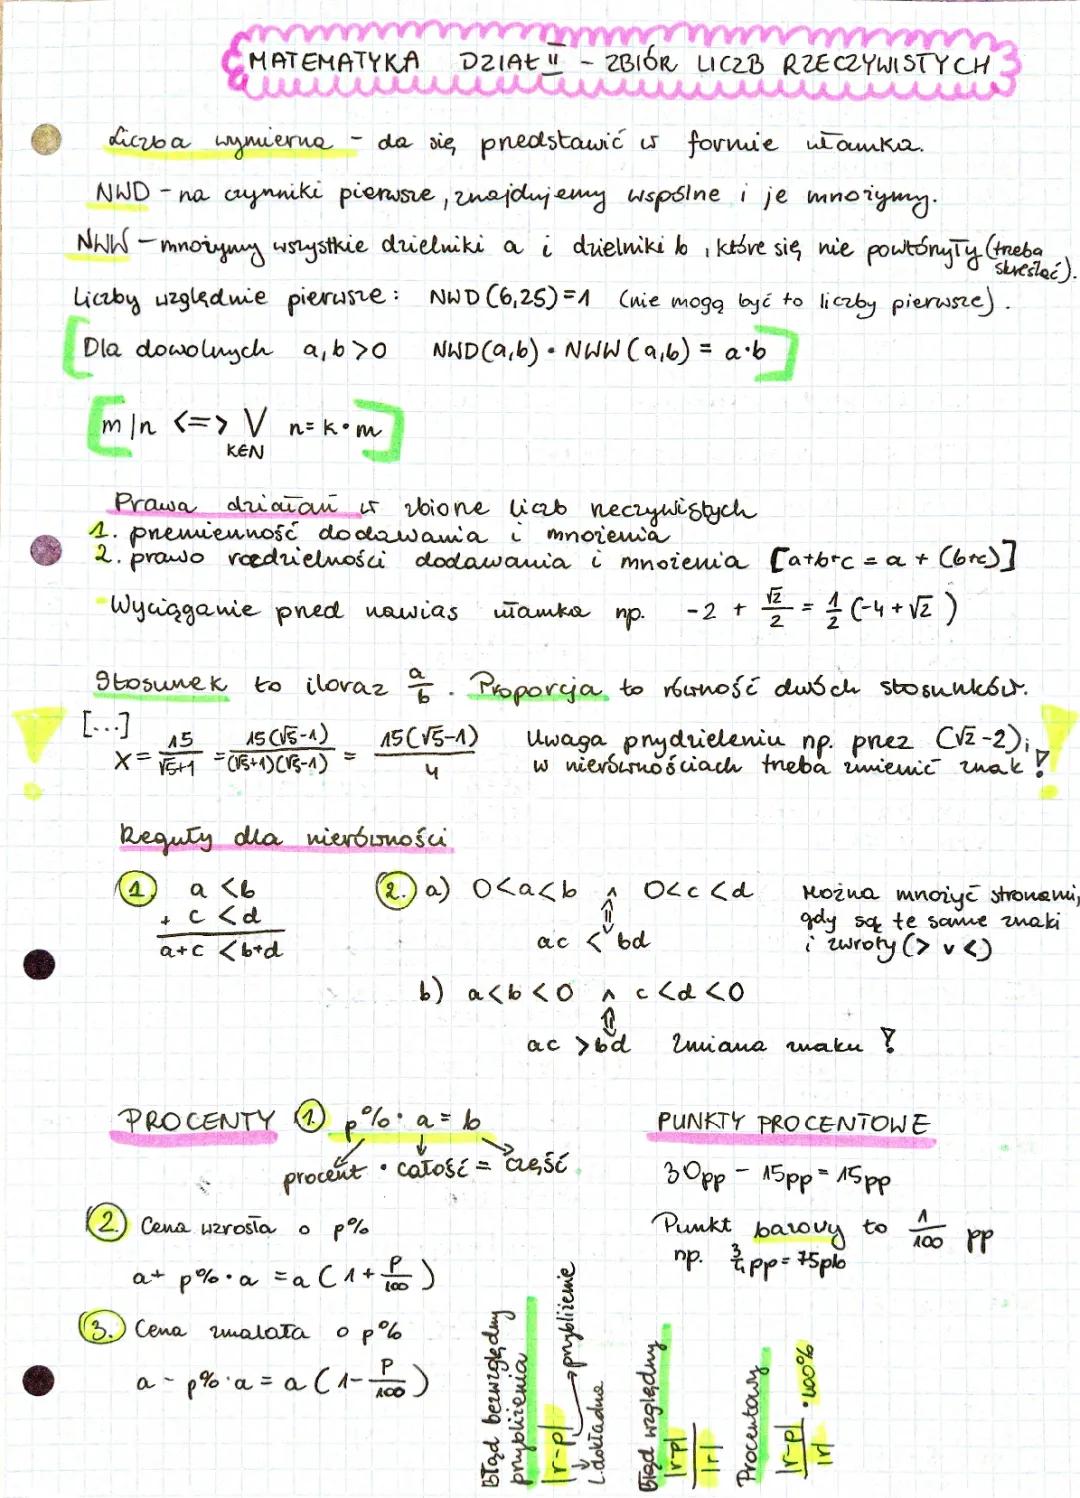 MATEMATYKA DZIAŁ II - ZBIÓR LICZB RZECZYWISTYCH
Liczba wymierna - da się przedstawić w formie ułamka.
NWD - na czynniki pierwsze, znajdujemy wspólne i je mnożymy.
NWW - mnożymy wszystkie dzielniki a i dzielniki b, które się nie powtórzyły (trzeba skreślać).
Liczby względnie pierwsze: NWD(6,25)=1 (nie mogą być to liczby pierwsze).
Dla dowolnych a,b>0 NWD(a,b) · NWW(a,b) = a·b
m|n <=> V n=k·m
k∈N
Prawa działań w zbiorze liczb rzeczywistych
1. przemienność dodawania i mnożenia
2. prawo rozdzielności dodawania i mnożenia [a+b+c = a + (b+c)]
- Wyciąganie przed nawias ułamka np. -2 + √2/2 = 1/2 (-4+√2)
Stosunek to iloraz a/b. Proporcja to równość dwóch stosunków.
[...]
x = 15/(√5+1) = 15(√5-1)/((√5+1)(√5-1)) = 15(√5-1)/4
Uwaga przy dzieleniu np. przez (√2-2);
w nierównościach trzeba zmienić znak!
Reguły dla nierówności
1. a<b
+ c<d
a+c <b+d
2. a) 0<a<b ∧ 0<c<d
⇔
ac < bd
Można mnożyć stronami,
gdy są te same znaki
i zwroty (> v <)
b) a<b<0 ∧ c<d<0
⇔
ac >bd Zmiana znaku !
PROCENTY 1. p%· a = b
procent · całość = część
2. Cena wzrosła o p%
a+ p%·a = a(1+ p/100)
3. Cena zmalała o p%
a - p%·a = a(1- p/100)
PUNKTY PROCENTOWE
30pp - 15pp = 15pp
Punkt bazowy to 1/100 pp
np. 3/4 pp = 75pb
Błąd bezwzględny
przybliżenia
|r-p| → przybliżenie
↓ dokładna
Błąd względny
|r-p|/|r|
Procentowy
|r-p|/|r| · 100%